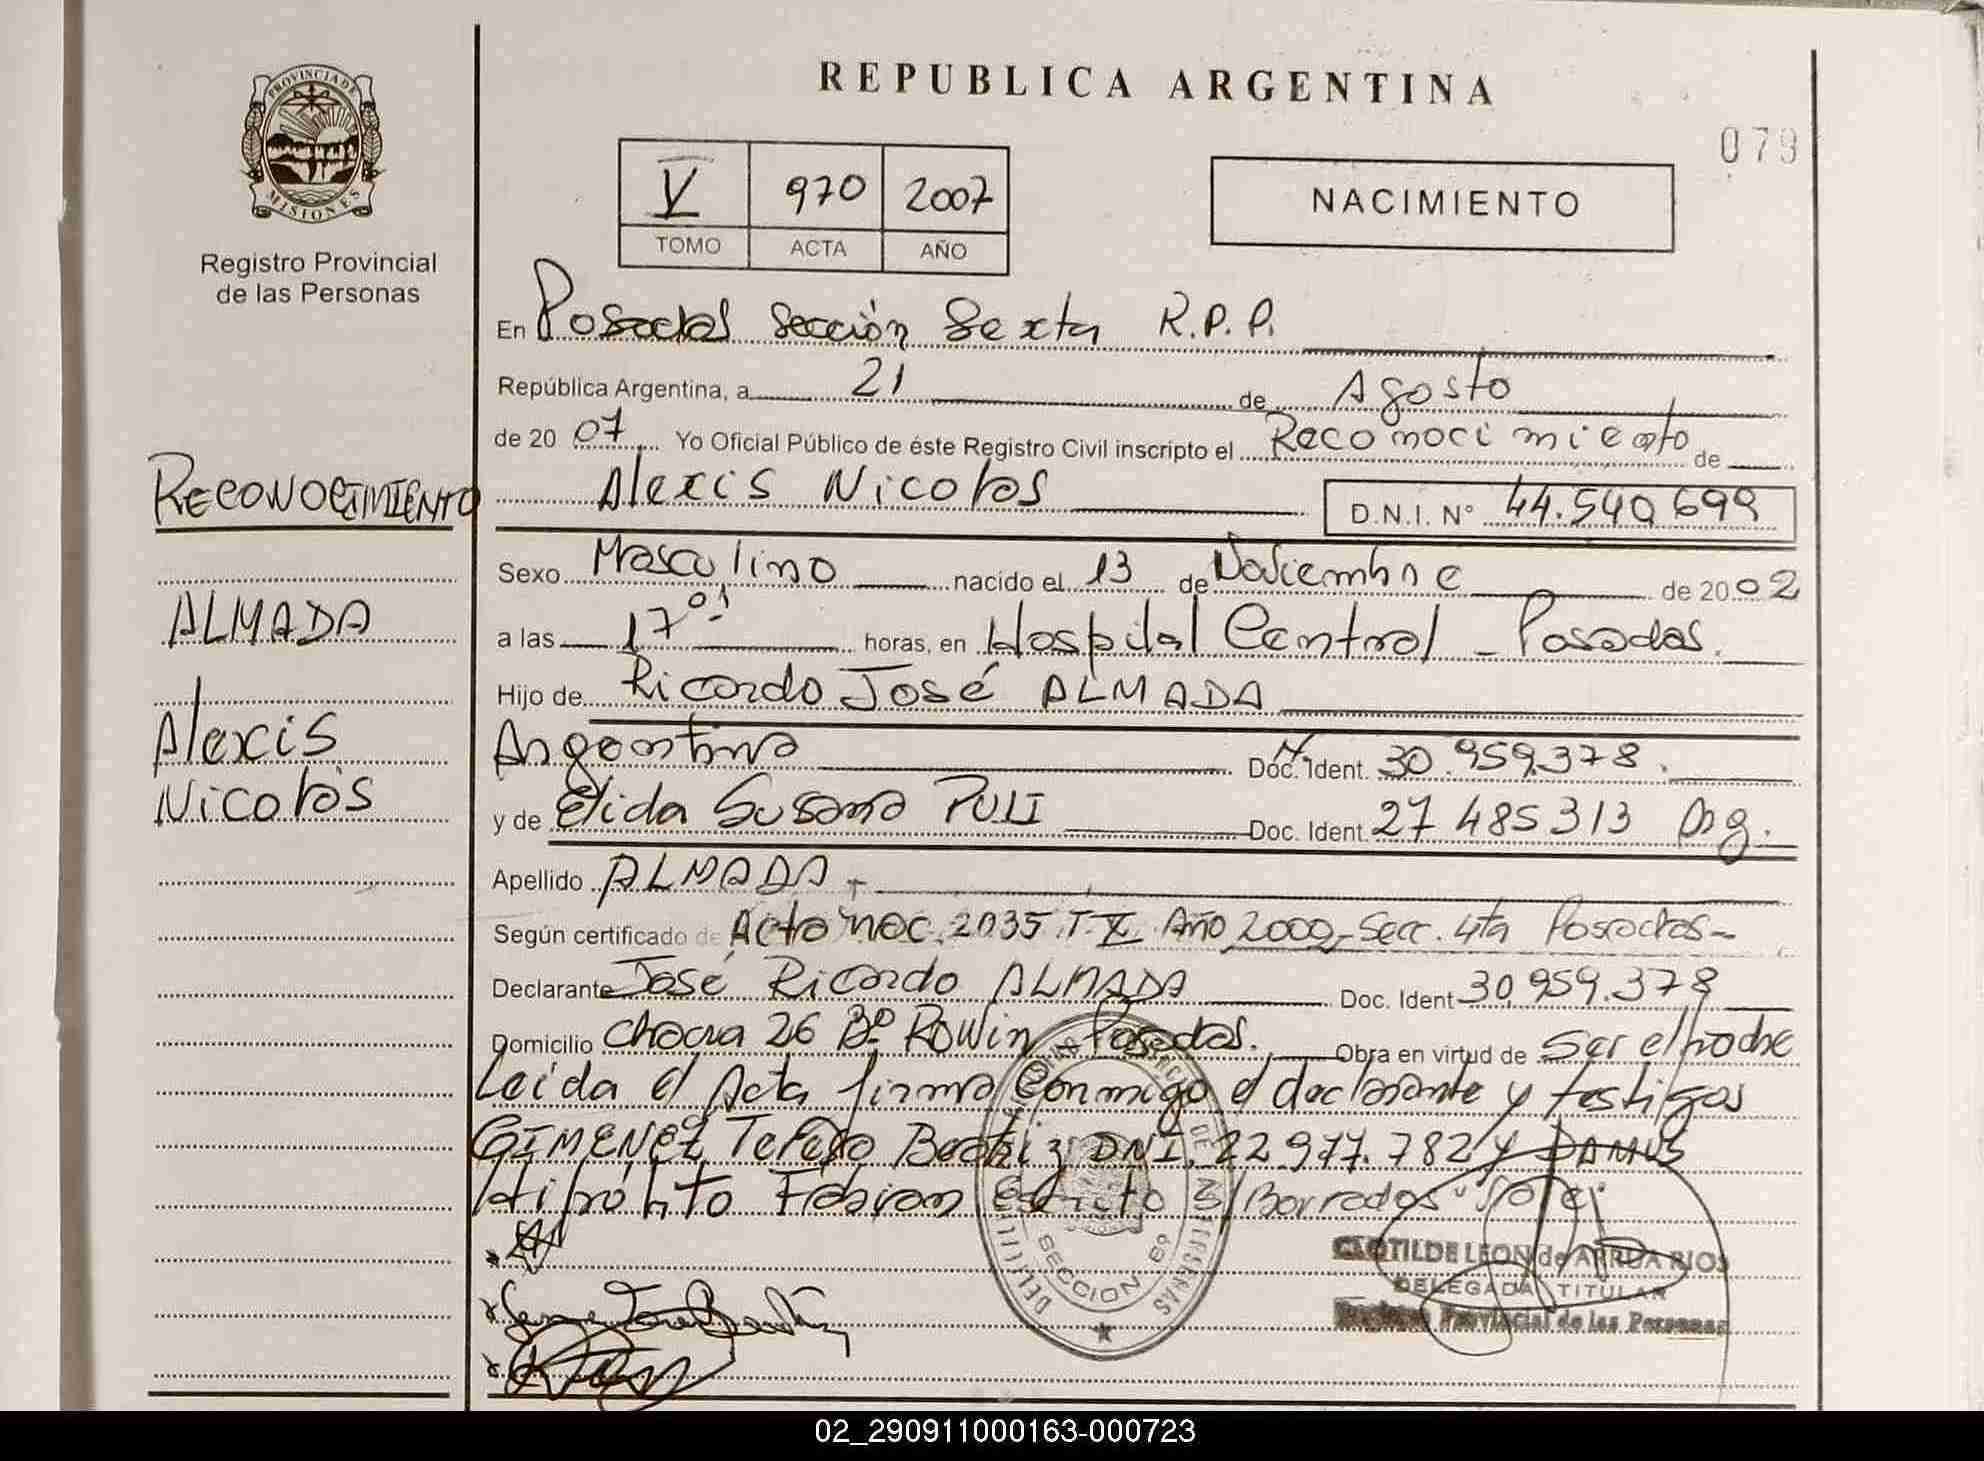 REPUBLICA ARGENTINA
079
PROVINCIA DE
MISIONES
Registro Provincial
de las Personas
V 970 2007
TOMO ACTA AÑO
NACIMIENTO
En Posadas Sección Sexta R.P.P.
República Argentina, a 21 de Agosto
de 20 07 Yo Oficial Público de éste Registro Civil inscripto el Reconocimiento de
Alexis Nicolás D.N.I. N° 44.540.699
Sexo Masculino nacido el 13 de Noviembre de 20 02
a las 17 01 horas, en Hospital Central - Posadas.
Hijo de Ricardo José ALMADA
Argentino Doc. Ident. 30.959.378.
y de Elida Susana PULI Doc. Ident. 27 485313 Arg.
Apellido ALMADA
Según certificado de Acta nac. 2035 T. X Año 2002 - Secc. 4ta Posadas -
Declarante José Ricardo ALMADA Doc. Ident 30.959.378
Domicilio Chacra 26 Bº Rowin - Posadas. Obra en virtud de ser el padre
Leída el Acta firma conmigo el declarante y testigos
GIMENEZ Teresa Beatriz DNI. 22.977.782 y DAMUS
Hipólito Fabian S/Borrados
RECONOCIMIENTO
ALMADA
Alexis
Nicolás
SECCION 6º
CLOTILDE LEON de ARRUA RIOS
DELEGADA TITULAR
Registro Provincial de las Personas
02_290911000163-000723